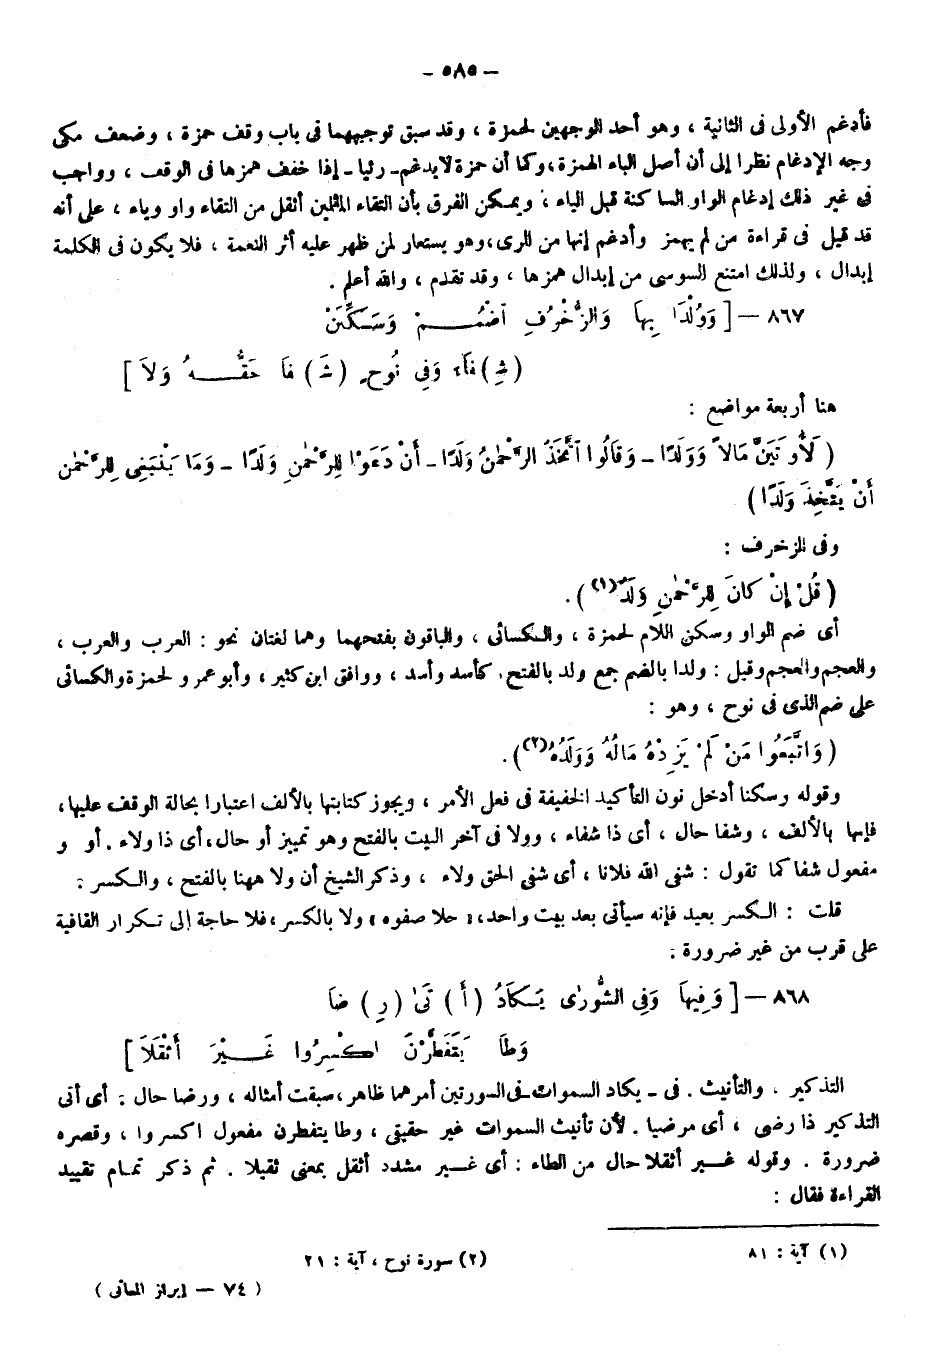 — ٥٨٥ —
فأدغم الأولى فى الثانية ، وهو أحد الوجهين لحمزة ، وقد سبق توجيههما فى باب وقف حمزة ، وضعف مكى
وجه الإدغام نظرا إلى أن أصل الياء الهمزة، وكما أن حمزة لايدغم ـ رئيا ـ إذا خفف همزها فى الوقف ، وواجب
فى غير ذلك إدغام الواو الساكنة قبل الياء ، ويمكن الفرق بأن التقاء المثلين أثقل من التقاء واو وياء ، على أنه
قد قيل فى قراءة من لم يهمز وأدغم إنها من الرى، وهو يستعار لمن ظهر عليه أثر النعمة ، فلا يكون فى الكلمة
إبدال ، ولذلك امتنع السوسى من إبدال همزها ، وقد تقدم ، والله أعلم .
٨٦٧ — [ وَوُلْدًا بِهَا وَالزُّخْرُفِ اضْمُمْ وَسَكِّنَنْ
(شِ) فَاءً وَفِى نُوحٍ (شَ) فَا حَقُّهُ وَلَا ]
هنا أربعة مواضع :
( لَأُوتَيَنَّ مَالاً وَوَلَدًا ـ وَقَالُوا اتَّخَذَ الرَّحْمٰنُ وَلَدًا ـ أَنْ دَعَوْا لِلرَّحْمٰنِ وَلَدًا ـ وَمَا يَنْبَغِى لِلرَّحْمٰنِ
أَنْ يَتَّخِذَ وَلَدًا )
وفى الزخرف :
( قُلْ إِنْ كَانَ لِلرَّحْمٰنِ وَلَدٌ(١) ) .
أى ضم الواو وسكن اللام لحمزة ، والكسائى ، والباقون بفتحهما وهما لغتان نحو : العرب والعرب ،
والعجم والعجم وقيل : ولدا بالضم جمع ولد بالفتح. كأسد وأسد ، ووافق ابن كثير ، وأبو عمرو لحمزة والكسائى
على ضم الذى فى نوح ، وهو :
( وَاتَّبَعُوا مَنْ لَمْ يَزِدْهُ مَالُهُ وَوَلَدُهُ(٢) ) .
وقوله وسكنا أدخل نون التأكيد الخفيفة فى فعل الأمر ، ويجوز كتابتها بالألف اعتبارا بحالة الوقف عليها،
فإنها بالألف ، وشفا حال ، أى ذا شفاء ، وولا فى آخر البيت بالفتح وهو تمييز أو حال، أى ذا ولاء . أو و
مفعول شفا كما تقول : شفى الله فلانا ، أى شفى الحق ولاء ، وذكر الشيخ أن ولا ههنا بالفتح ، والكسر :
قلت : الكسر بعيد فإنه سيأتى بعد بيت واحد، «حلا صفوه» ولا بالكسر، فلا حاجة إلى تكرار القافية
على قرب من غير ضرورة :
٨٦٨ — [ وَفِيهَا وَفِى الشُّورٰى يَكَادُ (أَ) تٰى (رِ) ضَا
وَطَا يَتَفَطَّرْنَ اكْسِرُوا غَيْرَ أَثْقَلَا ]
التذكير . والتأنيث . فى ـ يكاد السموات ـ فى السورتين أمرهما ظاهر، سبقت أمثاله ، ورضا حال : أى أتى
التذكير ذا رضى ، أى مرضيا . لأن تأنيث السموات غير حقيقى ، وطا يتفطرن مفعول اكسروا ، وقصره
ضرورة . وقوله غير أثقلا حال من الطاء : أى غير مشدد أثقل بمعنى ثقيلا . ثم ذكر تمام تقييد
القراءة فقال :
(١) آية : ٨١ (٢) سورة نوح ، آية : ٢١
( ٧٤ — إبراز المعانى )